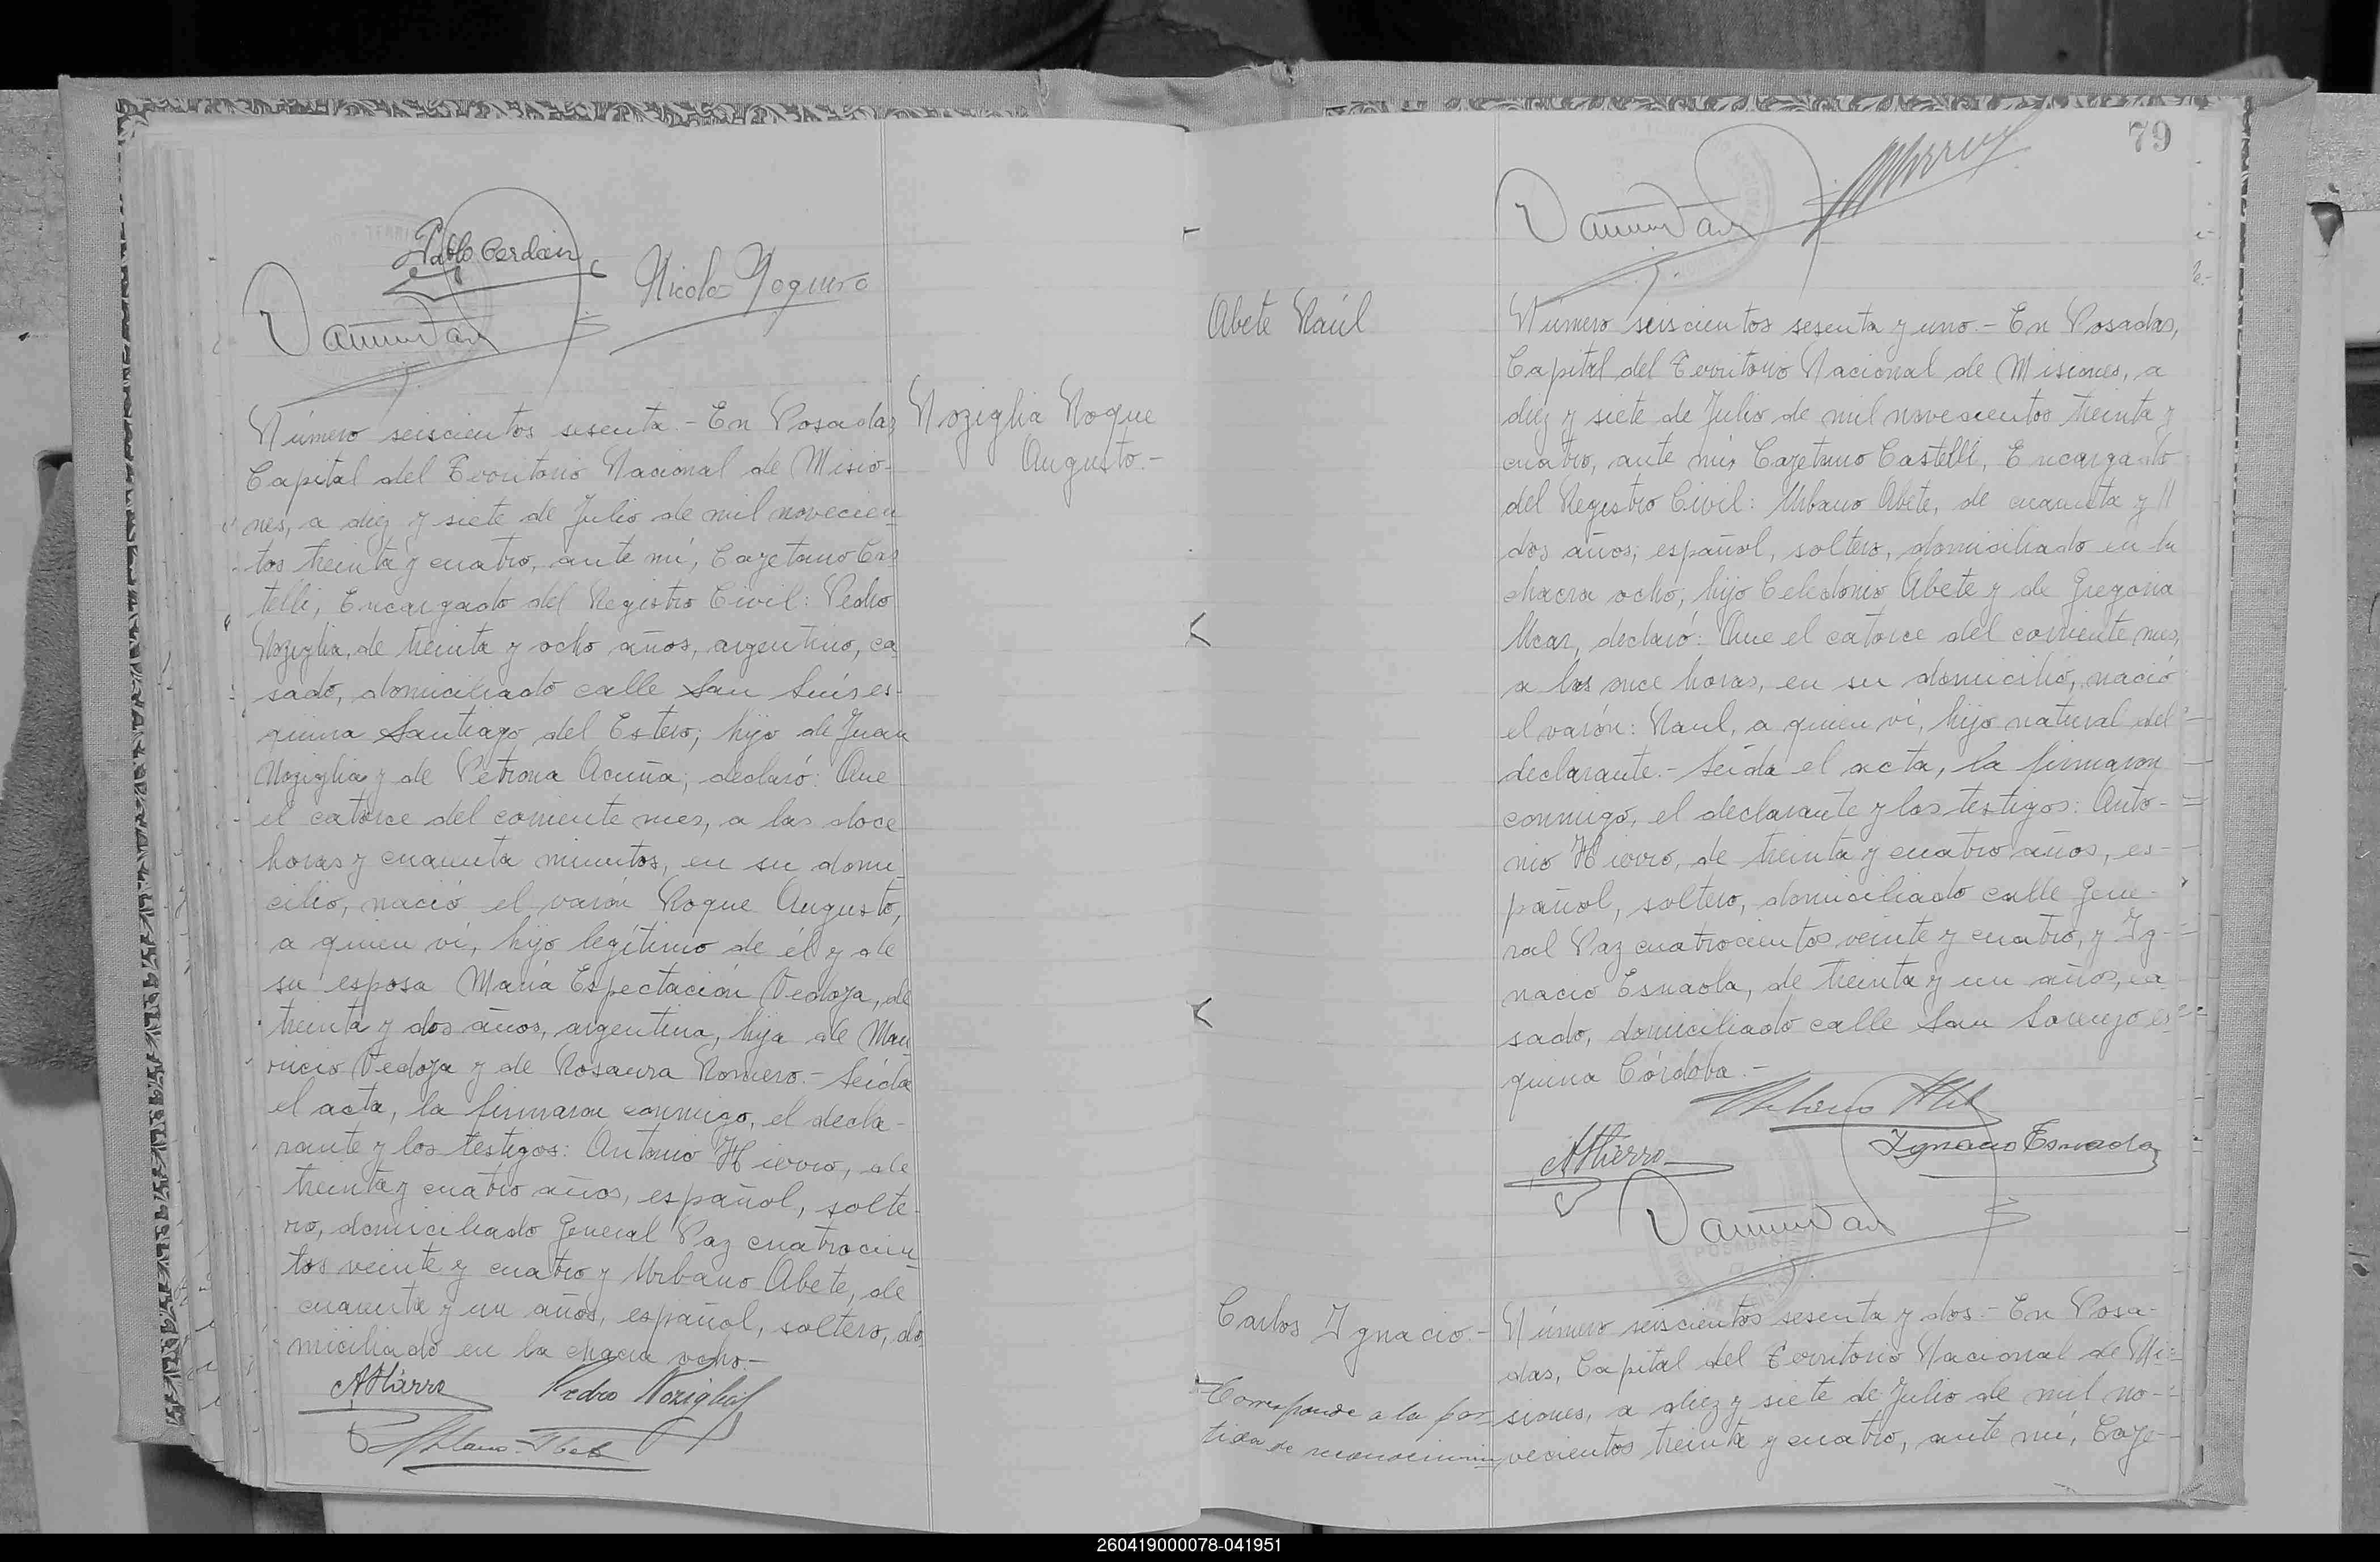 Pablo Cerdan
Nicolas Noguera
Noziglia Roque
Augusto.-
Número seiscientos sesenta.- En Posadas
Capital del Territorio Nacional de Misio-
nes, a diez y siete de Julio de mil novecien-
tos treinta y cuatro, ante mí, Cayetano Cas
telli, Encargado del Registro Civil: Pedro
Noziglia, de treinta y ocho años, argentino, ca
sado, domiciliado calle San Luís es-
quina Santiago del Estero; hijo de Juan
Noziglia y de Petrona Acuña; declaró: Que
el catorce del corriente mes, a las doce
horas y cuarenta minutos, en su domi
cilio, nació el varón Roque Augusto,
a quien ví, hijo legítimo de él y de
su esposa María Espectación Vedoya, de
treinta y dos años, argentina, hija de Mau
ricio Vedoya y de Rosaura Romero.- Leída
el acta, la firmaron conmigo, el decla-
rante y los testigos: Antonio Hierro, de
treinta y cuatro años, español, solte-
ro, domiciliado General Paz cuatrocien
tos veinte y cuatro y Urbano Abete, de
cuarenta y un años, español, soltero, do
miciliado en la chacra ocho.-
AHierro
Pedro Noziglia
Urbano Abete
79
Abete Raúl
Número seiscientos sesenta y uno.- En Posadas,
Capital del Territorio Nacional de Misiones, a
diez y siete de Julio de mil novecientos treinta y
cuatro, ante mí, Cayetano Castelli, Encargado
del Registro Civil: Urbano Abete, de cuarenta y //
dos años; español, soltero, domiciliado en la
chacra ocho, hijo Celedonio Abete y de Gregoria
Ucar, declaró: Que el catorce del corriente mes,
a las once horas, en su domicilio, nació
el varón: Raul, a quien ví, hijo natural del
declarante.- Leída el acta, la firmaron
conmigo, el declarante y los testigos: Anto-
nio Hierro, de treinta y cuatro años, es-
pañol, soltero, domiciliado calle Gene-
ral Paz cuatrocientos veinte y cuatro, y Ig-
nacio Esnaola, de treinta y un años, ca
sado, domiciliado calle San Lorenzo es-
quina Córdoba.-
Urbano Abete
AHierro
Ignacio Esnaola
Carlos Ignacio.-
Corresponde a la par
tida de reconocimien
Número seiscientos sesenta y dos.- En Posa-
das, Capital del Territorio Nacional de Mi-
siones, a diez y siete de Julio de mil no-
vecientos treinta y cuatro, ante mí, Caye-
260419000078-041951